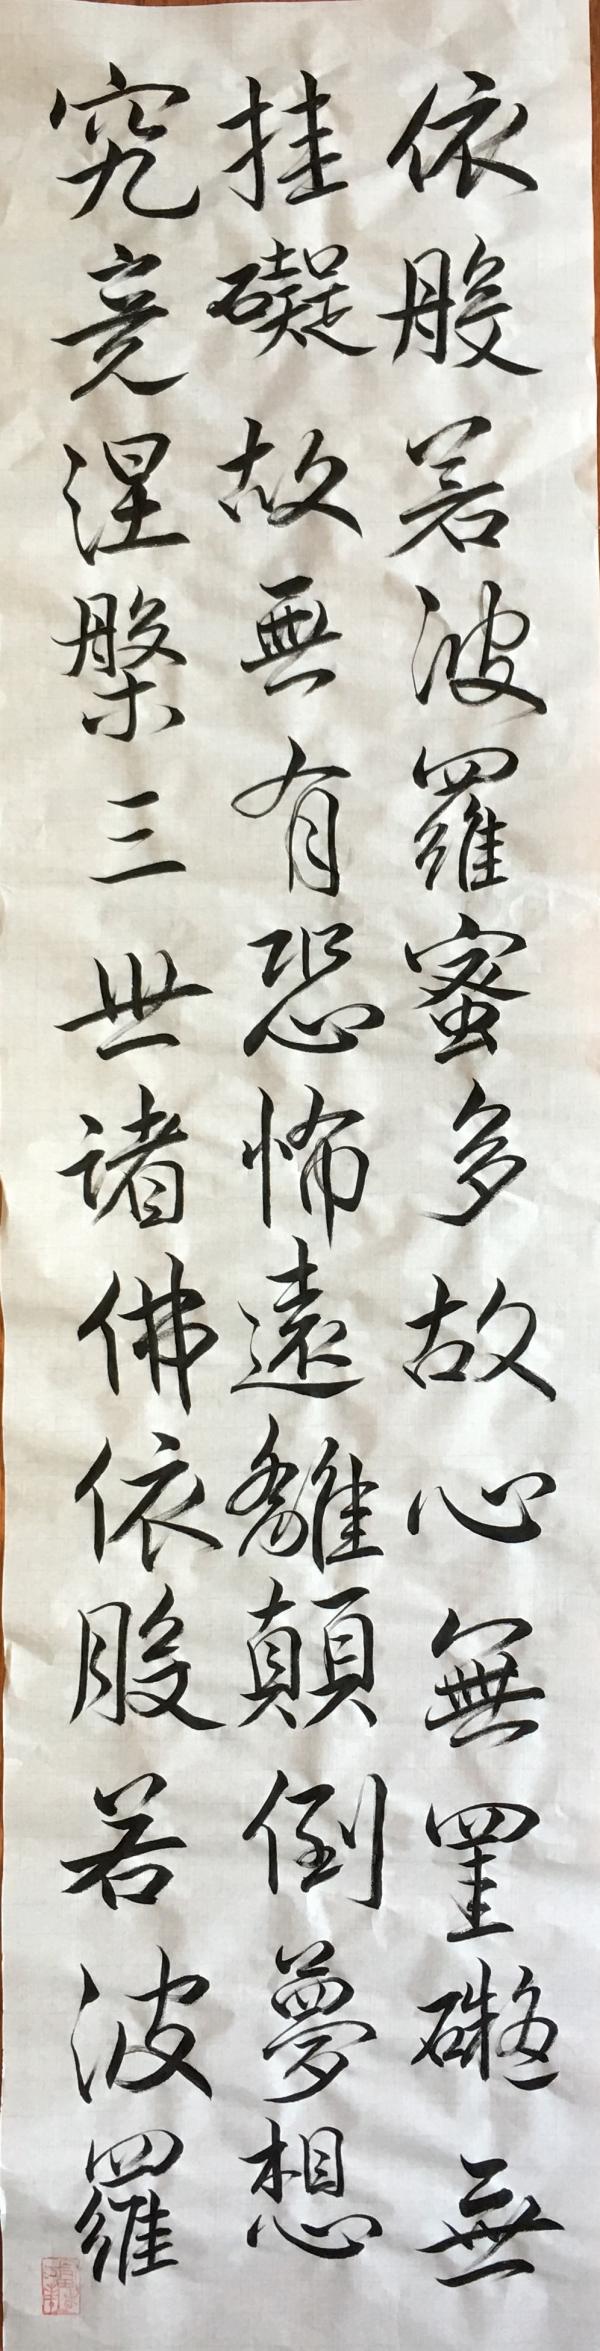 依般若波羅蜜多故心無罣礙無
挂礙故無有恐怖遠離顛倒夢想
究竟涅槃三世諸佛依般若波羅